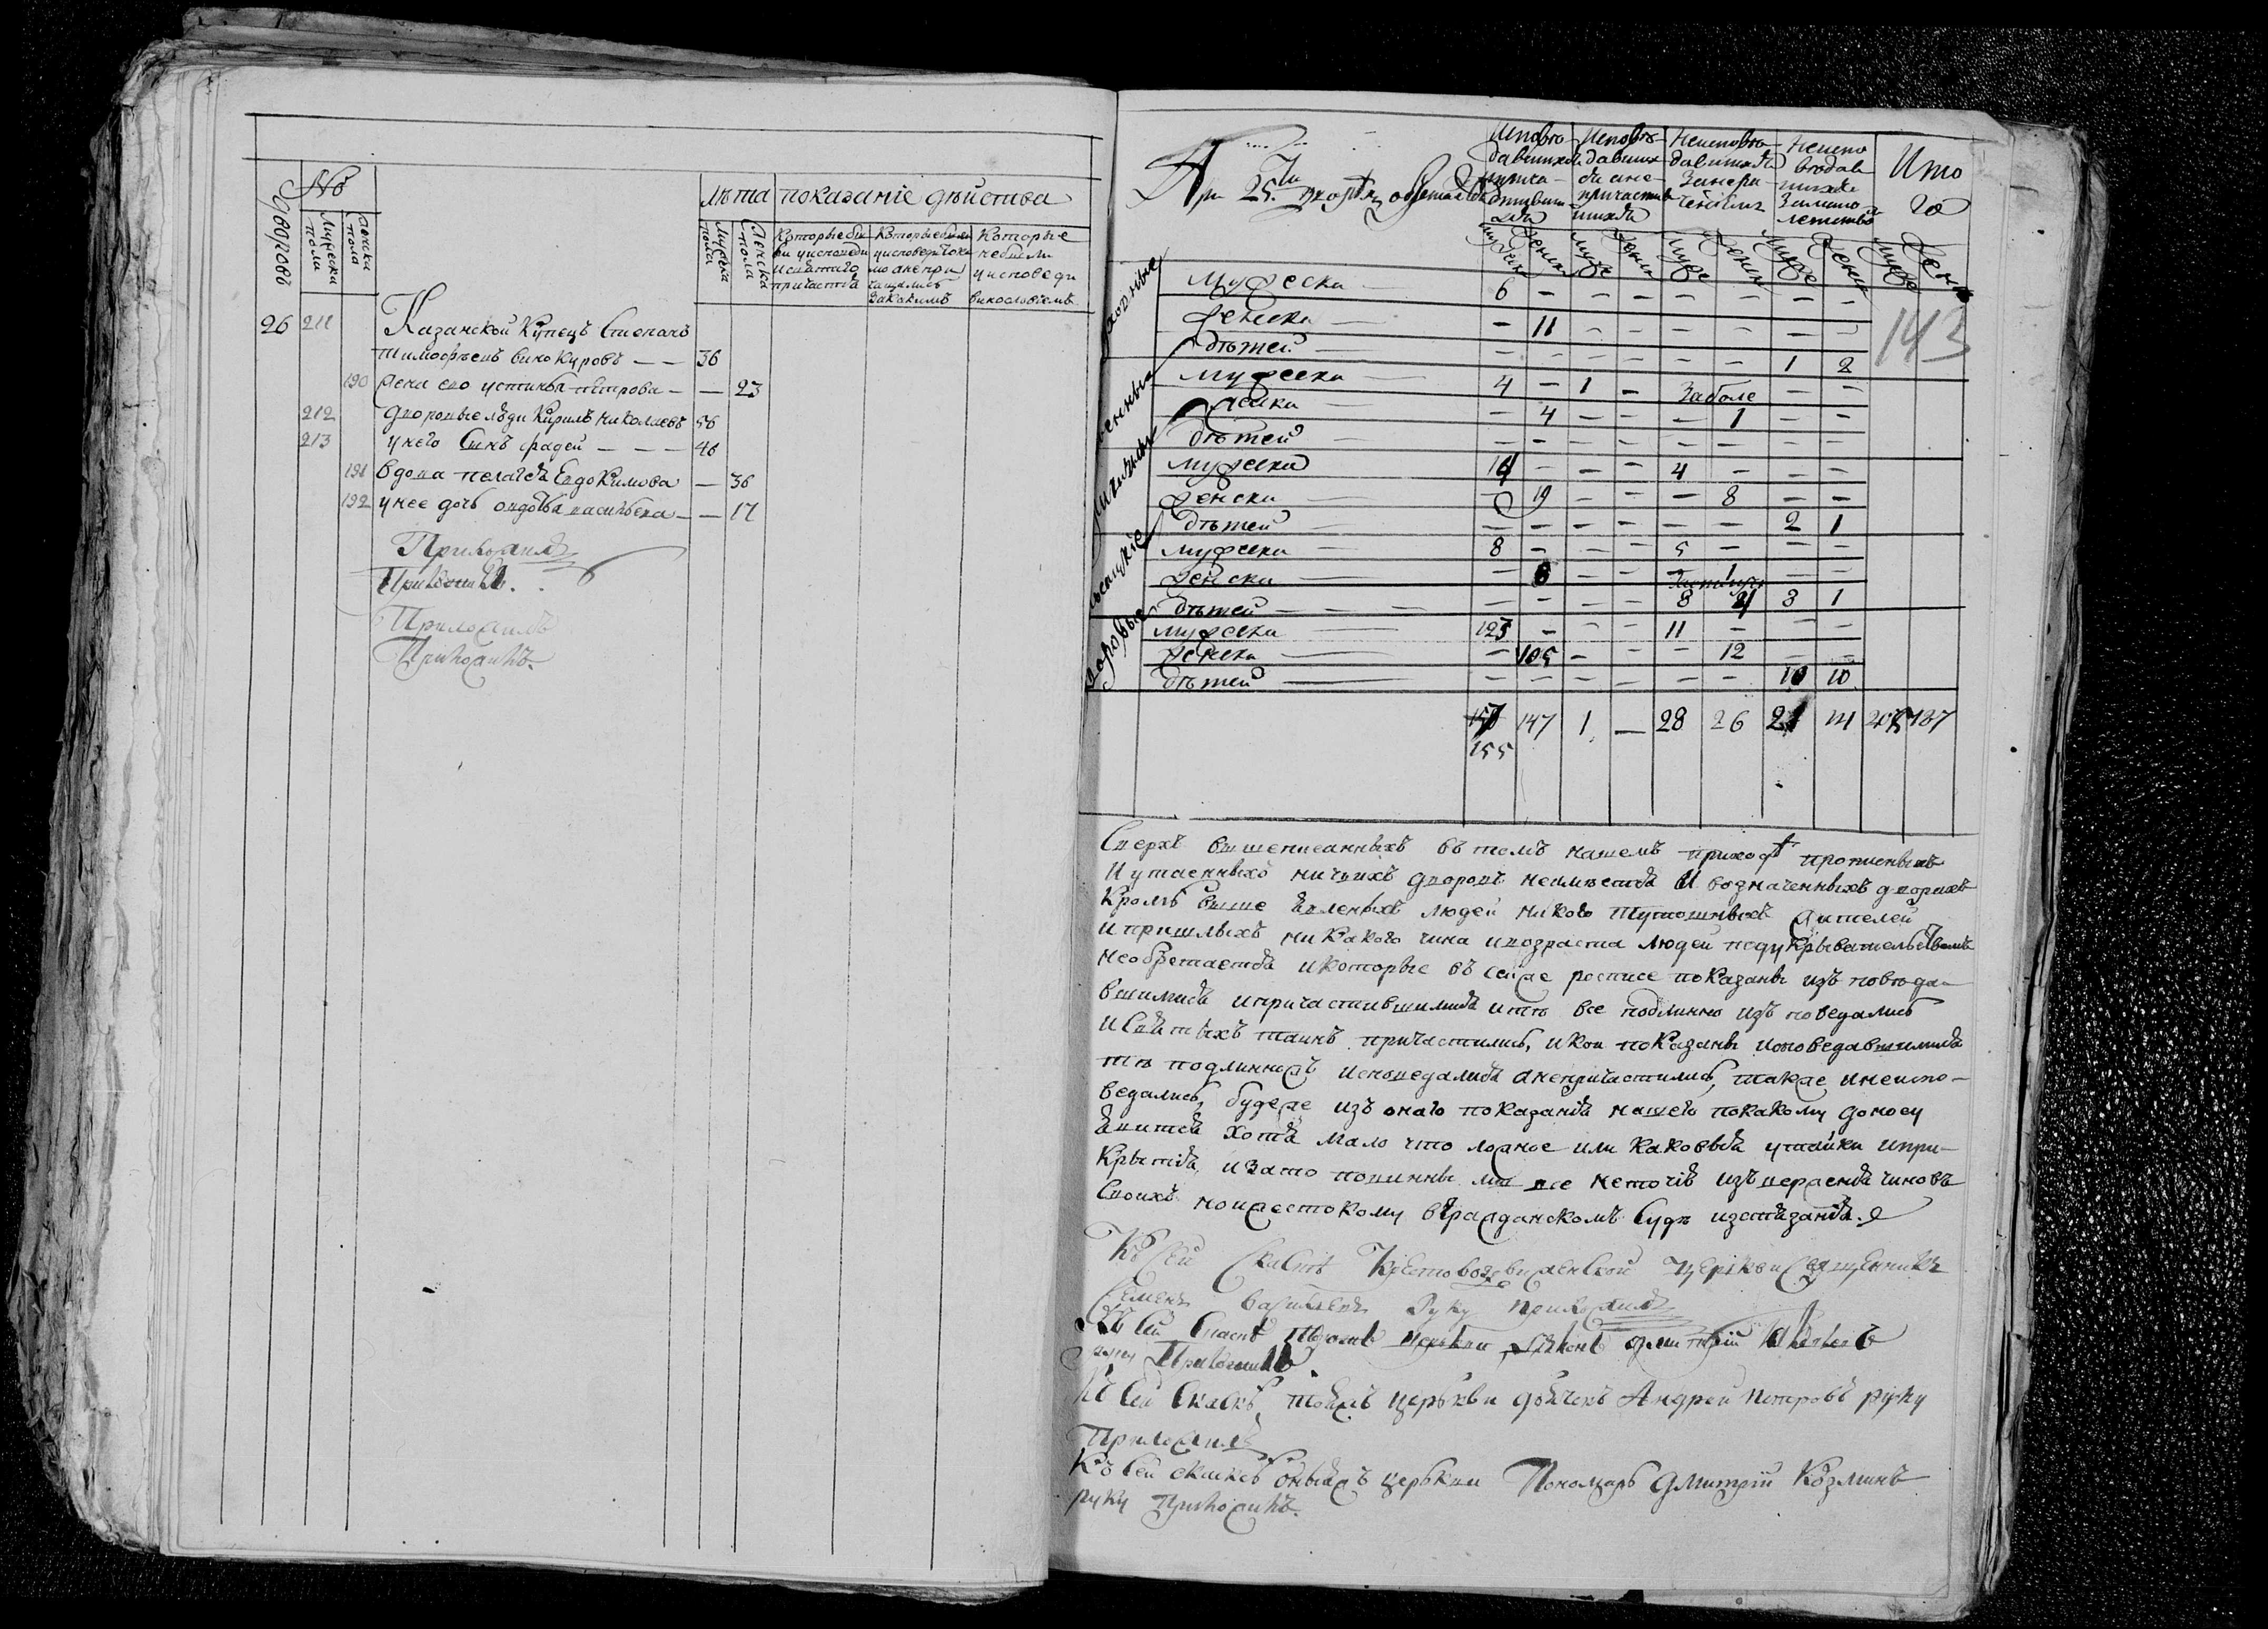 №
дворовъ
мужеска пола
женска пола
лѣта показанiе дѣйства
мужеска пола
женска пола
Которые бы
ли у исповеди
и святаго
причастiя
Которые были
у исповеди токи
мо а непри
чащались
за какимъ
Которые
не были
у исповеди
винословiемъ
26 211 Казанской купецъ Степанъ
тимофѣевъ винокуровъ — — 36
190 жена ево устинья петрова — — 23
212 дворовые люди Кирилъ николаевъ 56
213 у него сынъ фадей — — — 46
191 вдова пелагѣя Евдокимова — 36
192 у нее дочь авдотья васильева — — 17
Приложилъ
Приложилъ.
Приложилъ
Приложилъ
Исповѣ
давшихся
Исповѣ
давших
ся а не
причастив
шихся
Неисповѣ
давшихся
Неиспо
ведав
шихся
За мало
летствомъ
Ито
го
мужеск женск муже женск муже женск муже женск муже жен
143
мужеска — 6 — — — — — — —
женска — — 11 — — — — — —
дѣтей — — — — — — — 1 2
мужеска — 4 — 1 — Заболе — —
женска — — 4 — — — 1 — —
дѣтей — — — — — — — — —
мужеска 14 — — — 4 — — —
женска — — 19 — — — 8 — —
дѣтей — — — — — — — 2 1
мужеска — 8 — — — 5 — — —
женска — — 8 — — — 1 — —
дѣтей — — — — — — 8 3 1
дворовые
мужеска 123 — — — 11 — — —
женска — 105 — — — 12 — —
дѣтей — — — — — — 10 10
147 1 — 28 26 21 14 187
155
Сверхъ вышеписанныхъ въ томъ нашемъ приходѣ прописныхъ
И утаенныхъ ничьихъ дворовъ неимѣется и возначенныхъ дворихъ
Кромѣ выше явленыхъ людей никого тутошныхъ жителей
и пришлыхъ никакого чина ивозраста людей подукрывательствомъ
необретается икоторые въ сейже росписе показаны изъ поведа
вшимися ипричастившимися итѣ все подлинно изъ поведались
и святыхъ таинъ причастились, икои показаны исповедавшимися
тѣ подлинножъ исповедались анепричастились, также инеиспо-
ведались, будеже изъ онаго показанiя нашего покакому доносу
явится хотя мало что ложное или каковыя утайки ипри-
крытiя, изато повинны мы все неточiю изъверженiя чиновъ
своихъ ножестокому въгражданскомъ суде истязанiя.
Къ сей скаскѣ Крестовоздвиженской церкви священникъ
семенъ васильевъ Руку приложилъ
Къ сей скаскѣ тоежъ церькви дьяконъ
руку приложилъ.
Къ сей скаскѣ тояжъ церькви дьячекъ Андрей петровъ руку
приложилъ
Къ сей скаскѣ оныяжъ церькви Пономарь дмитрiй Козминъ
руку приложилъ.